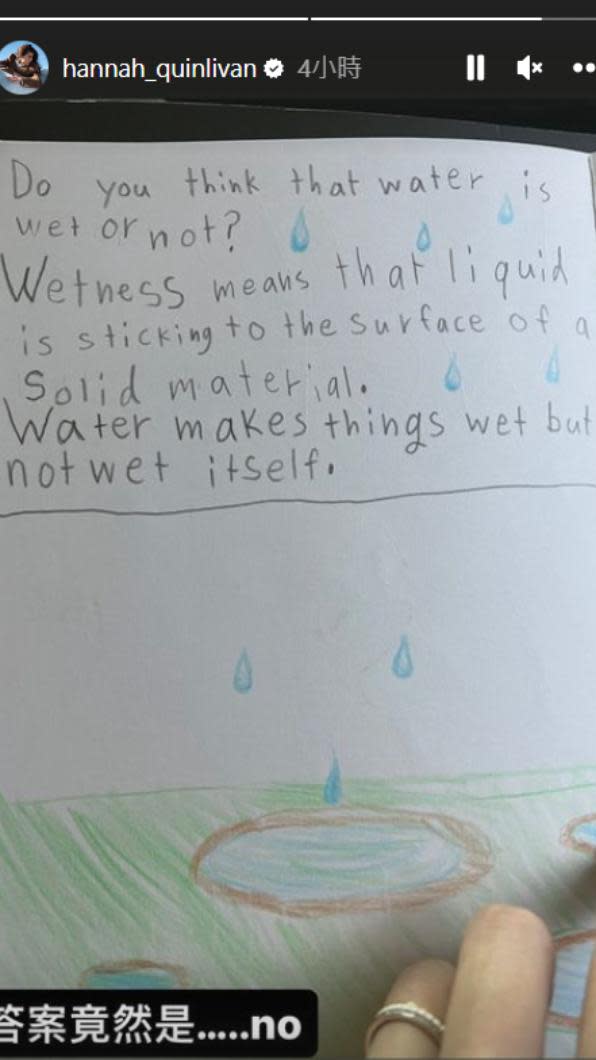 hannah_quinlivan 4小時
Do you think that water is
wet or not?
Wetness means that liquid
is sticking to the surface of a
solid material.
Water makes things wet but
not wet itself.
答案竟然是.....no